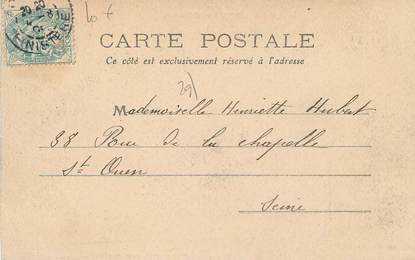 10 f
CARTE POSTALE
Ce côté est exclusivement réservé à l'adresse
29)
Mademoiselle Henriette Hubert
38 Rue de la chapelle
St Ouen
Seine